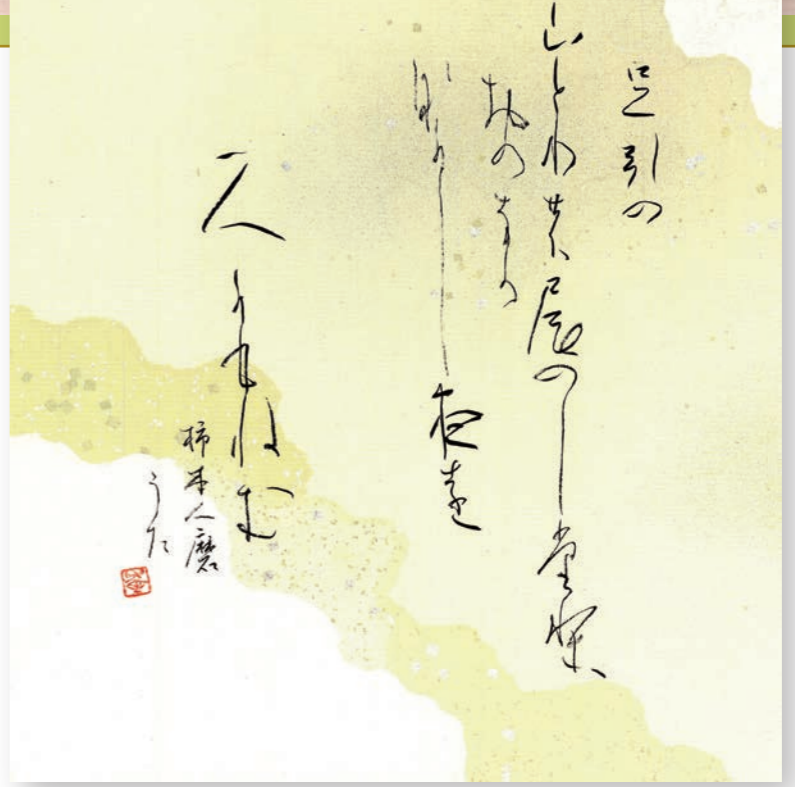 足引の
山とりの尾のしたり
おのなか
なかし夜を
一人かもねむ
柿本人麿
うた